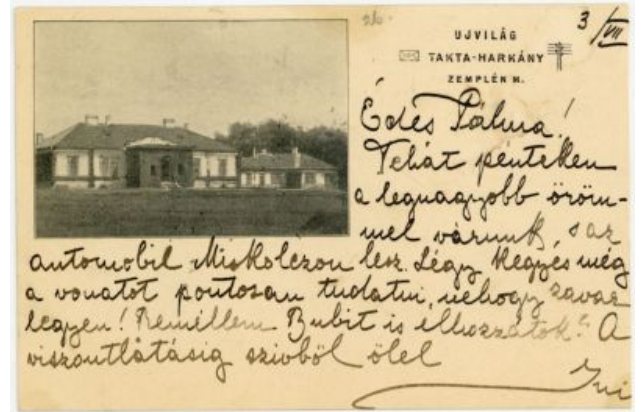 26.
3/VII
UJVILÁG
TAKTA-HARKÁNY
ZEMPLÉN M.
Édes Pálma!
Tehát pénteken
a legnagyobb öröm-
mel várunk, s az
automobil Miskolczon lesz. Légy kegyes még
a vonatot pontosan tudatni, nehogy zavar
legyen! Reméllem Bubit is elhozzátok? A
viszontlátásig szivből ölel